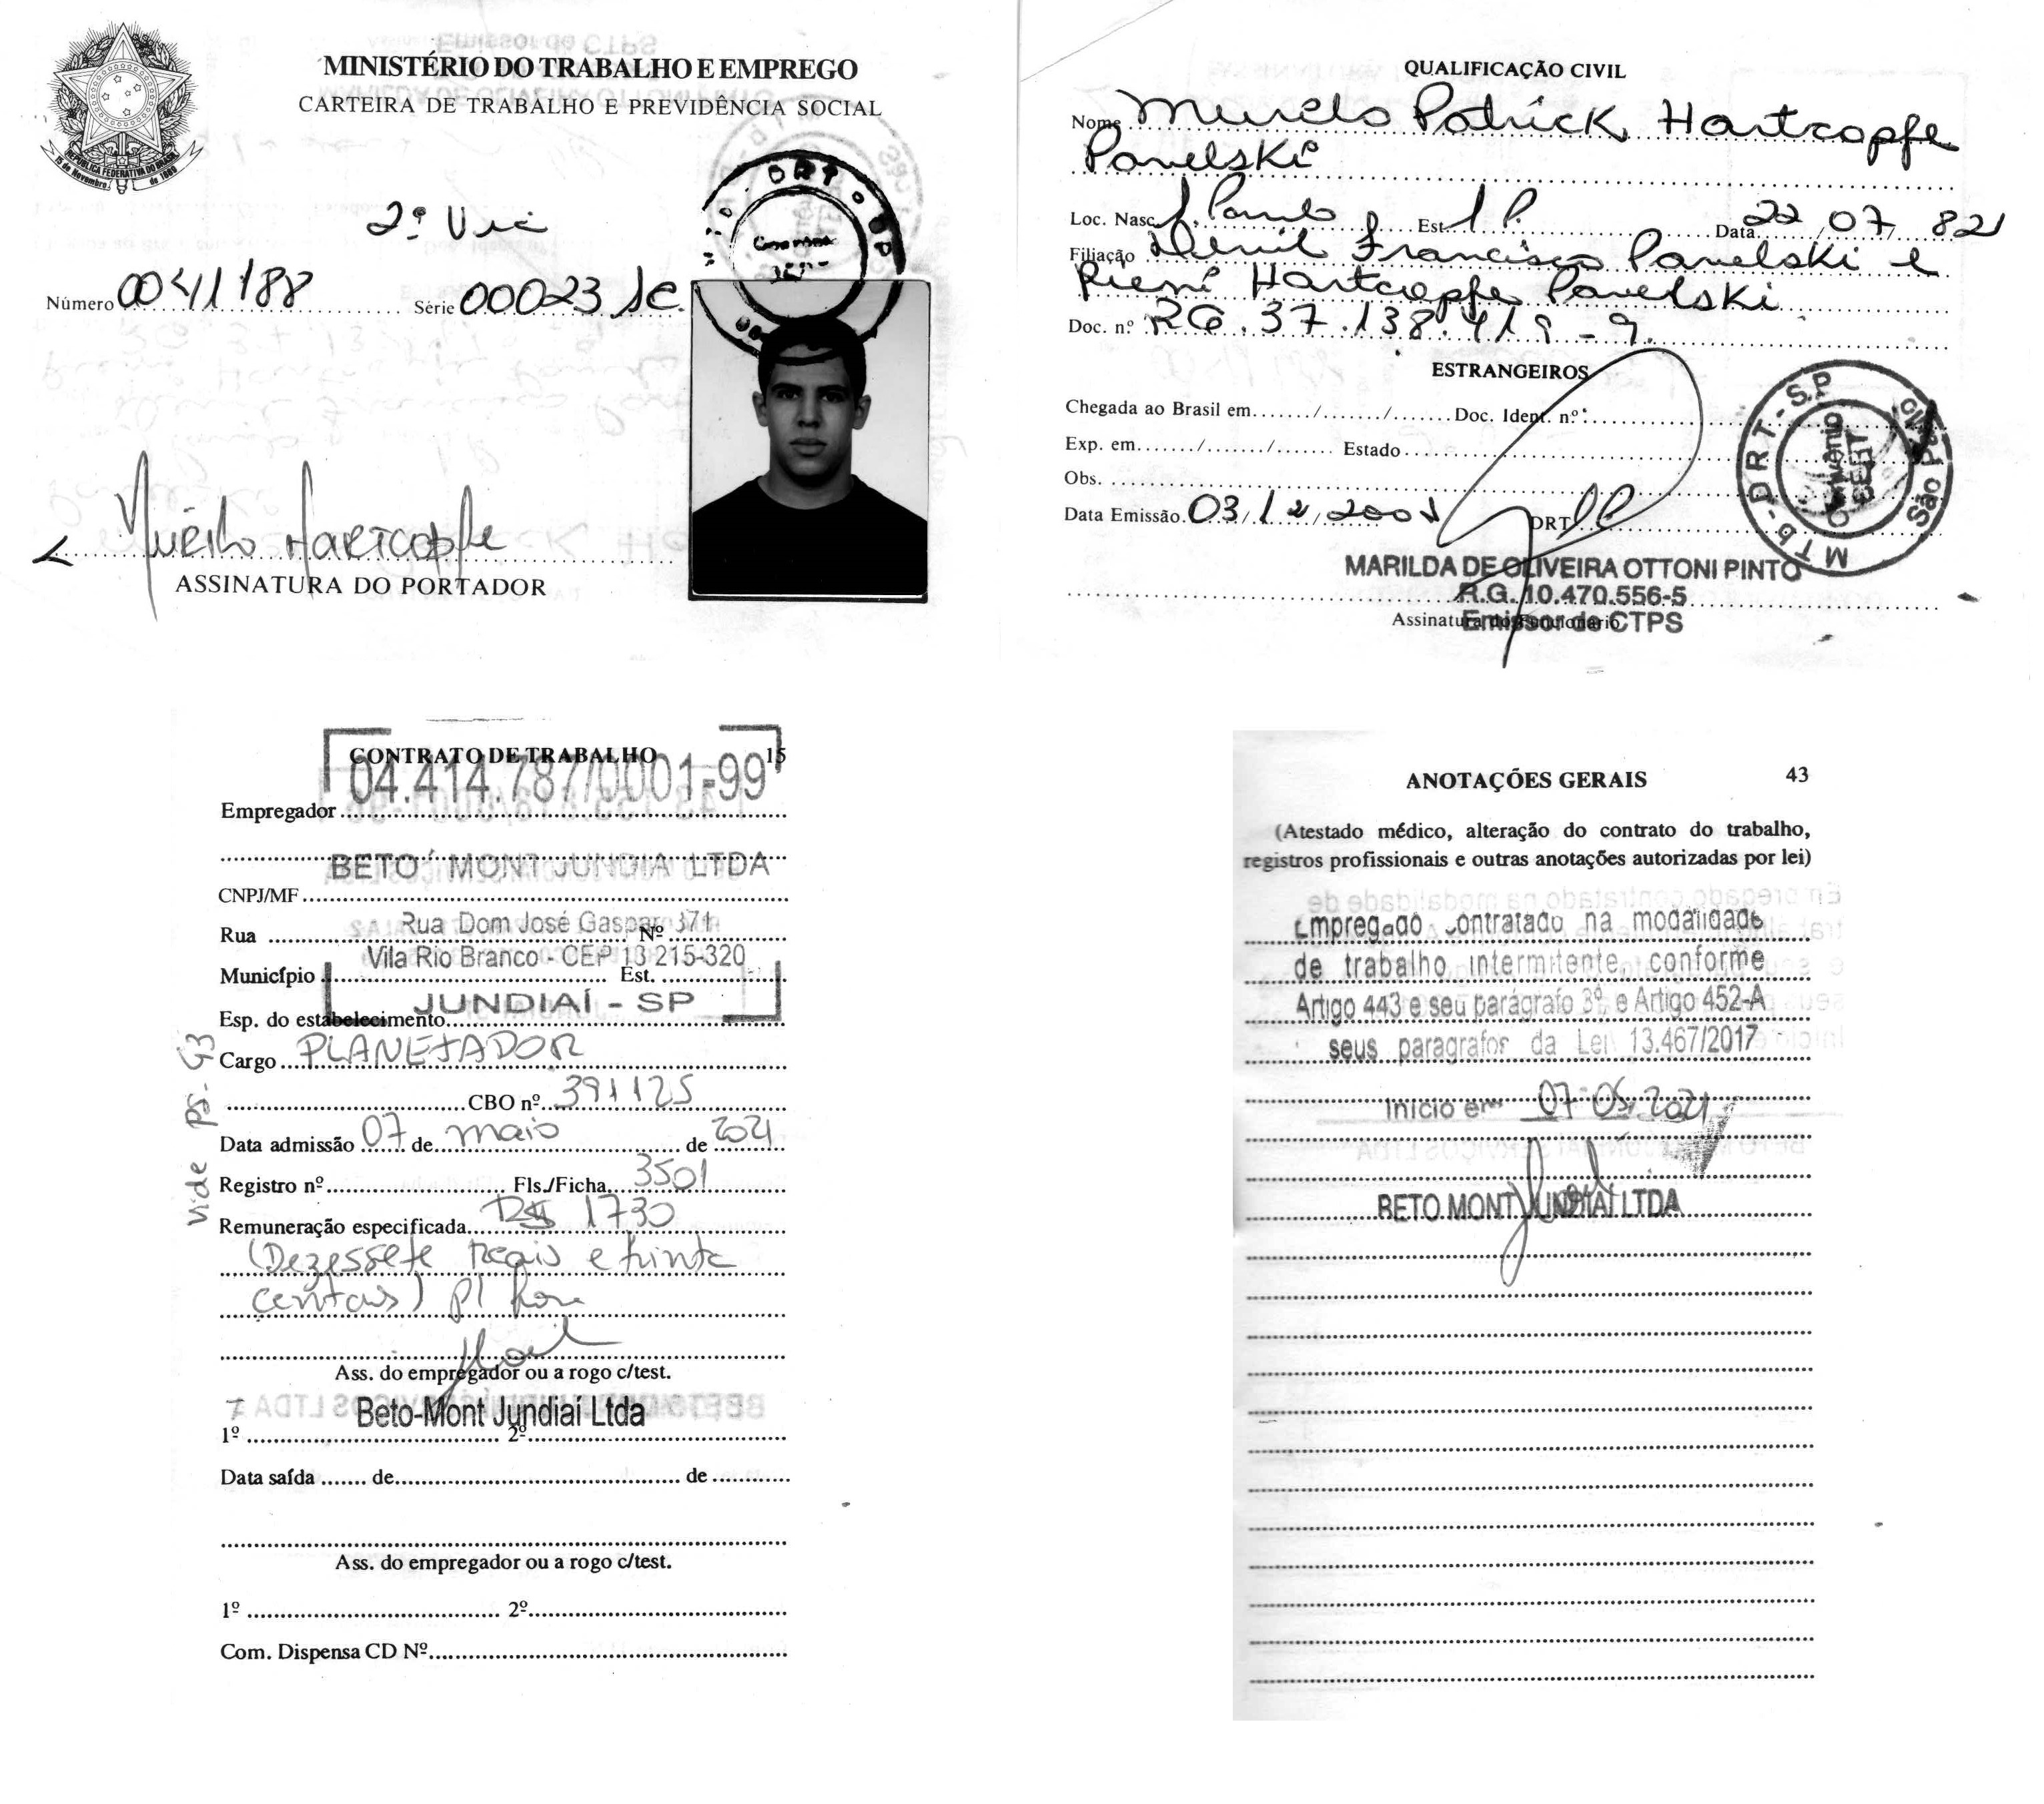 MINISTÉRIO DO TRABALHO E EMPREGO
CARTEIRA DE TRABALHO E PREVIDÊNCIA SOCIAL
REPÚBLICA FEDERATIVA DO BRASIL
15 de Novembro de 1889
DRT
2ª Via
Número 0041188 Série 00023 SC.
Murilo Hartcopfe
ASSINATURA DO PORTADOR
QUALIFICAÇÃO CIVIL
Nome Murilo Patrick Hartcopfe
Pavelski
Loc. Nasc. S. Paulo Est. S P. Data 22/07/82
Filiação Francisco Pavelski e
Hartcopfe Pavelski
Doc. nº RG. 37.138.419-9.
ESTRANGEIROS
Chegada ao Brasil em ....../....../...... Doc. Ident. nº
Exp. em ....../....../...... Estado
Obs.
Data Emissão. 03/12/2001 DRT SP
MTb - DRT - S.P
Convênio
SERT
São Paulo
MARILDA DE OLIVEIRA OTTONI PINTO
R.G. 10.470.556-5
Assinatura do Funcionário
Emissor de CTPS
CONTRATO DE TRABALHO 15
04.414.787/0001-99
Empregador
BETO MONT JUNDIA LTDA
CNPJ/MF
Rua Dom José Gaspar 371
Rua Nº
Vila Rio Branco - CEP 13 215-320
Município Est.
JUNDIAÍ - SP
Esp. do estabelecimento
Cargo PLANEJADOR
CBO nº 391125
Data admissão 07 de maio de 2021
Registro nº Fls./Ficha 3501
Remuneração especificada R$ 1730
(Dezessete reais e trinta
centavos) p/ hora
Ass. do empregador ou a rogo c/test.
Beto-Mont Jundiaí Ltda
1º 2º
Data saída de de
Ass. do empregador ou a rogo c/test.
1º 2º
Com. Dispensa CD Nº
vide pg. 43
ANOTAÇÕES GERAIS 43
(Atestado médico, alteração do contrato do trabalho,
registros profissionais e outras anotações autorizadas por lei)
Empregado contratado na modalidade
de trabalho intermitente, conforme
Artigo 443 e seu parágrafo 3º, e Artigo 452-A
seus paragrafos da Lei 13.467/2017
Inicio em 07-05-2021
BETO MONT JUNDIAÍ LTDA